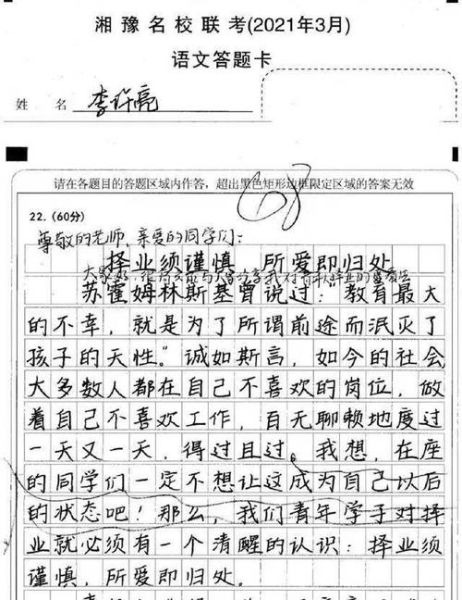 湘豫名校联考(2021年3月)
语文答题卡
姓 名 李许亮
请在各题目的答题区域内作答，超出黑色矩形边框限定区域的答案无效
22. (60分)
尊敬的老师、亲爱的同学们：
择业须谨慎 所爱即归处
大家好 与大家分享我对青年择业的
苏霍姆林斯基曾说过：“教育最大
的不幸，就是为了所谓前途而泯灭了
孩子的天性。”诚如斯言，如今的社会
大多数人都在自己不喜欢的岗位，做
着自己不喜欢工作，百无聊赖地度过
一天又一天，得过且过。我想，在座
的同学们一定不想让这成为自己以后
的状态吧！那么，我们青年学子对择
业就必须有一个清醒的认识：择业须
谨慎，所爱即归处。